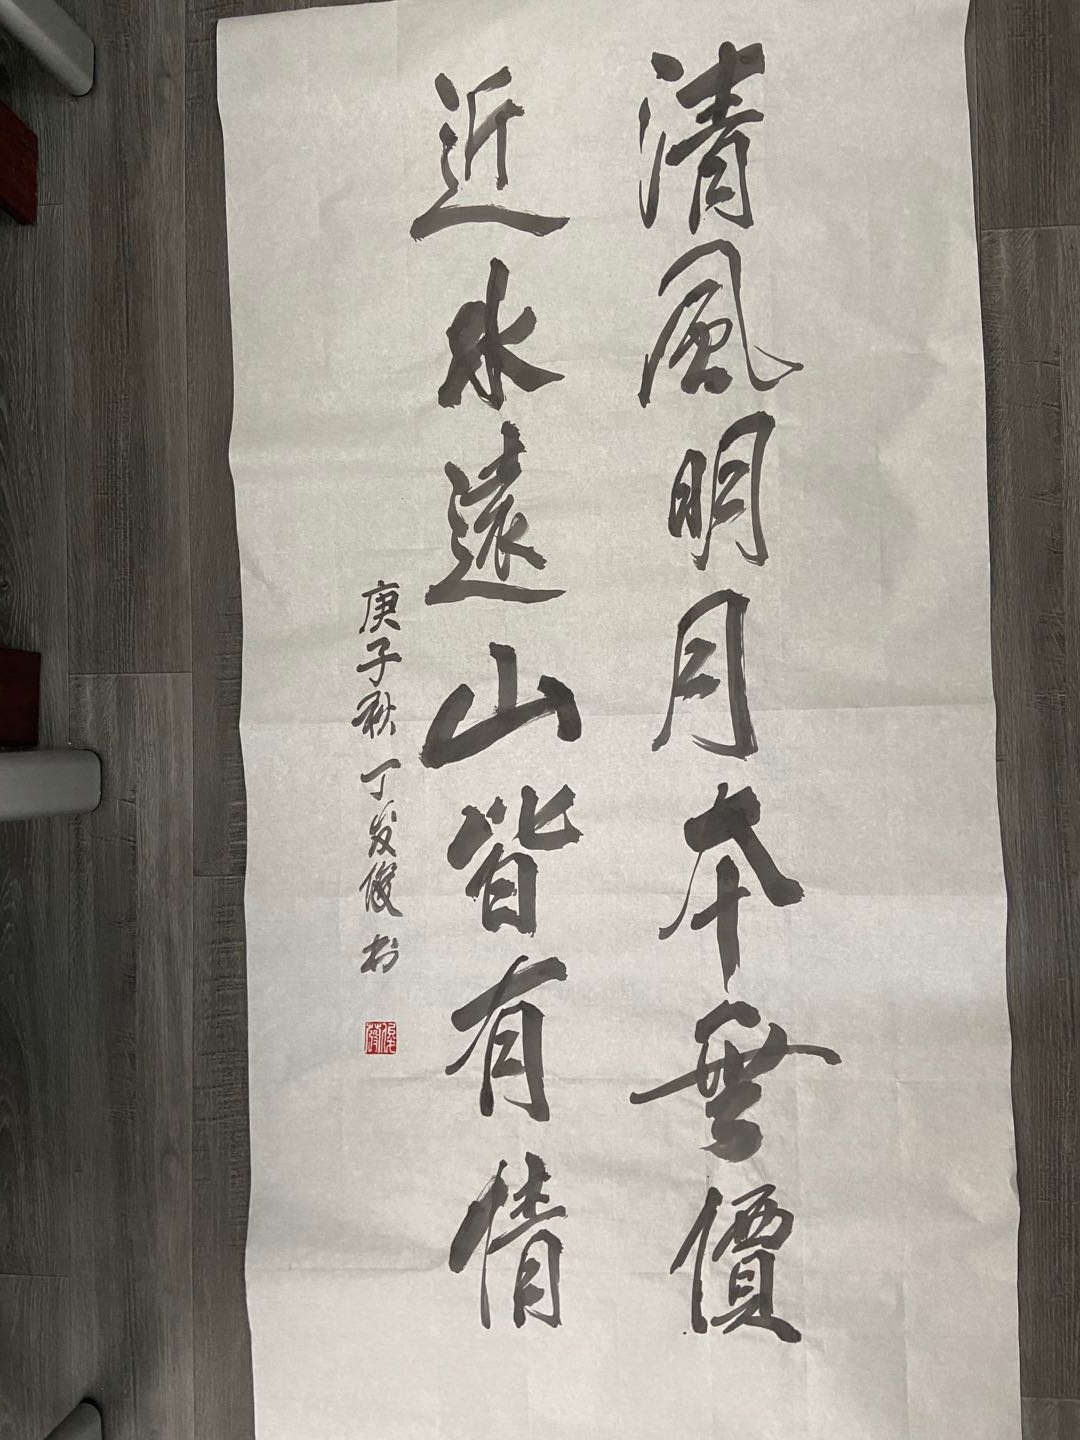 清風明月本無價
近水遠山皆有情
庚子秋 丁发俊书